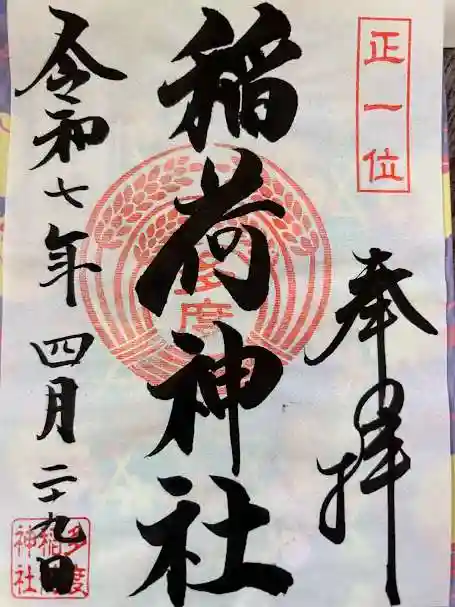 正一位
奉拝
稲荷神社
多度
令和七年四月二十九日
多度
稲荷
神社